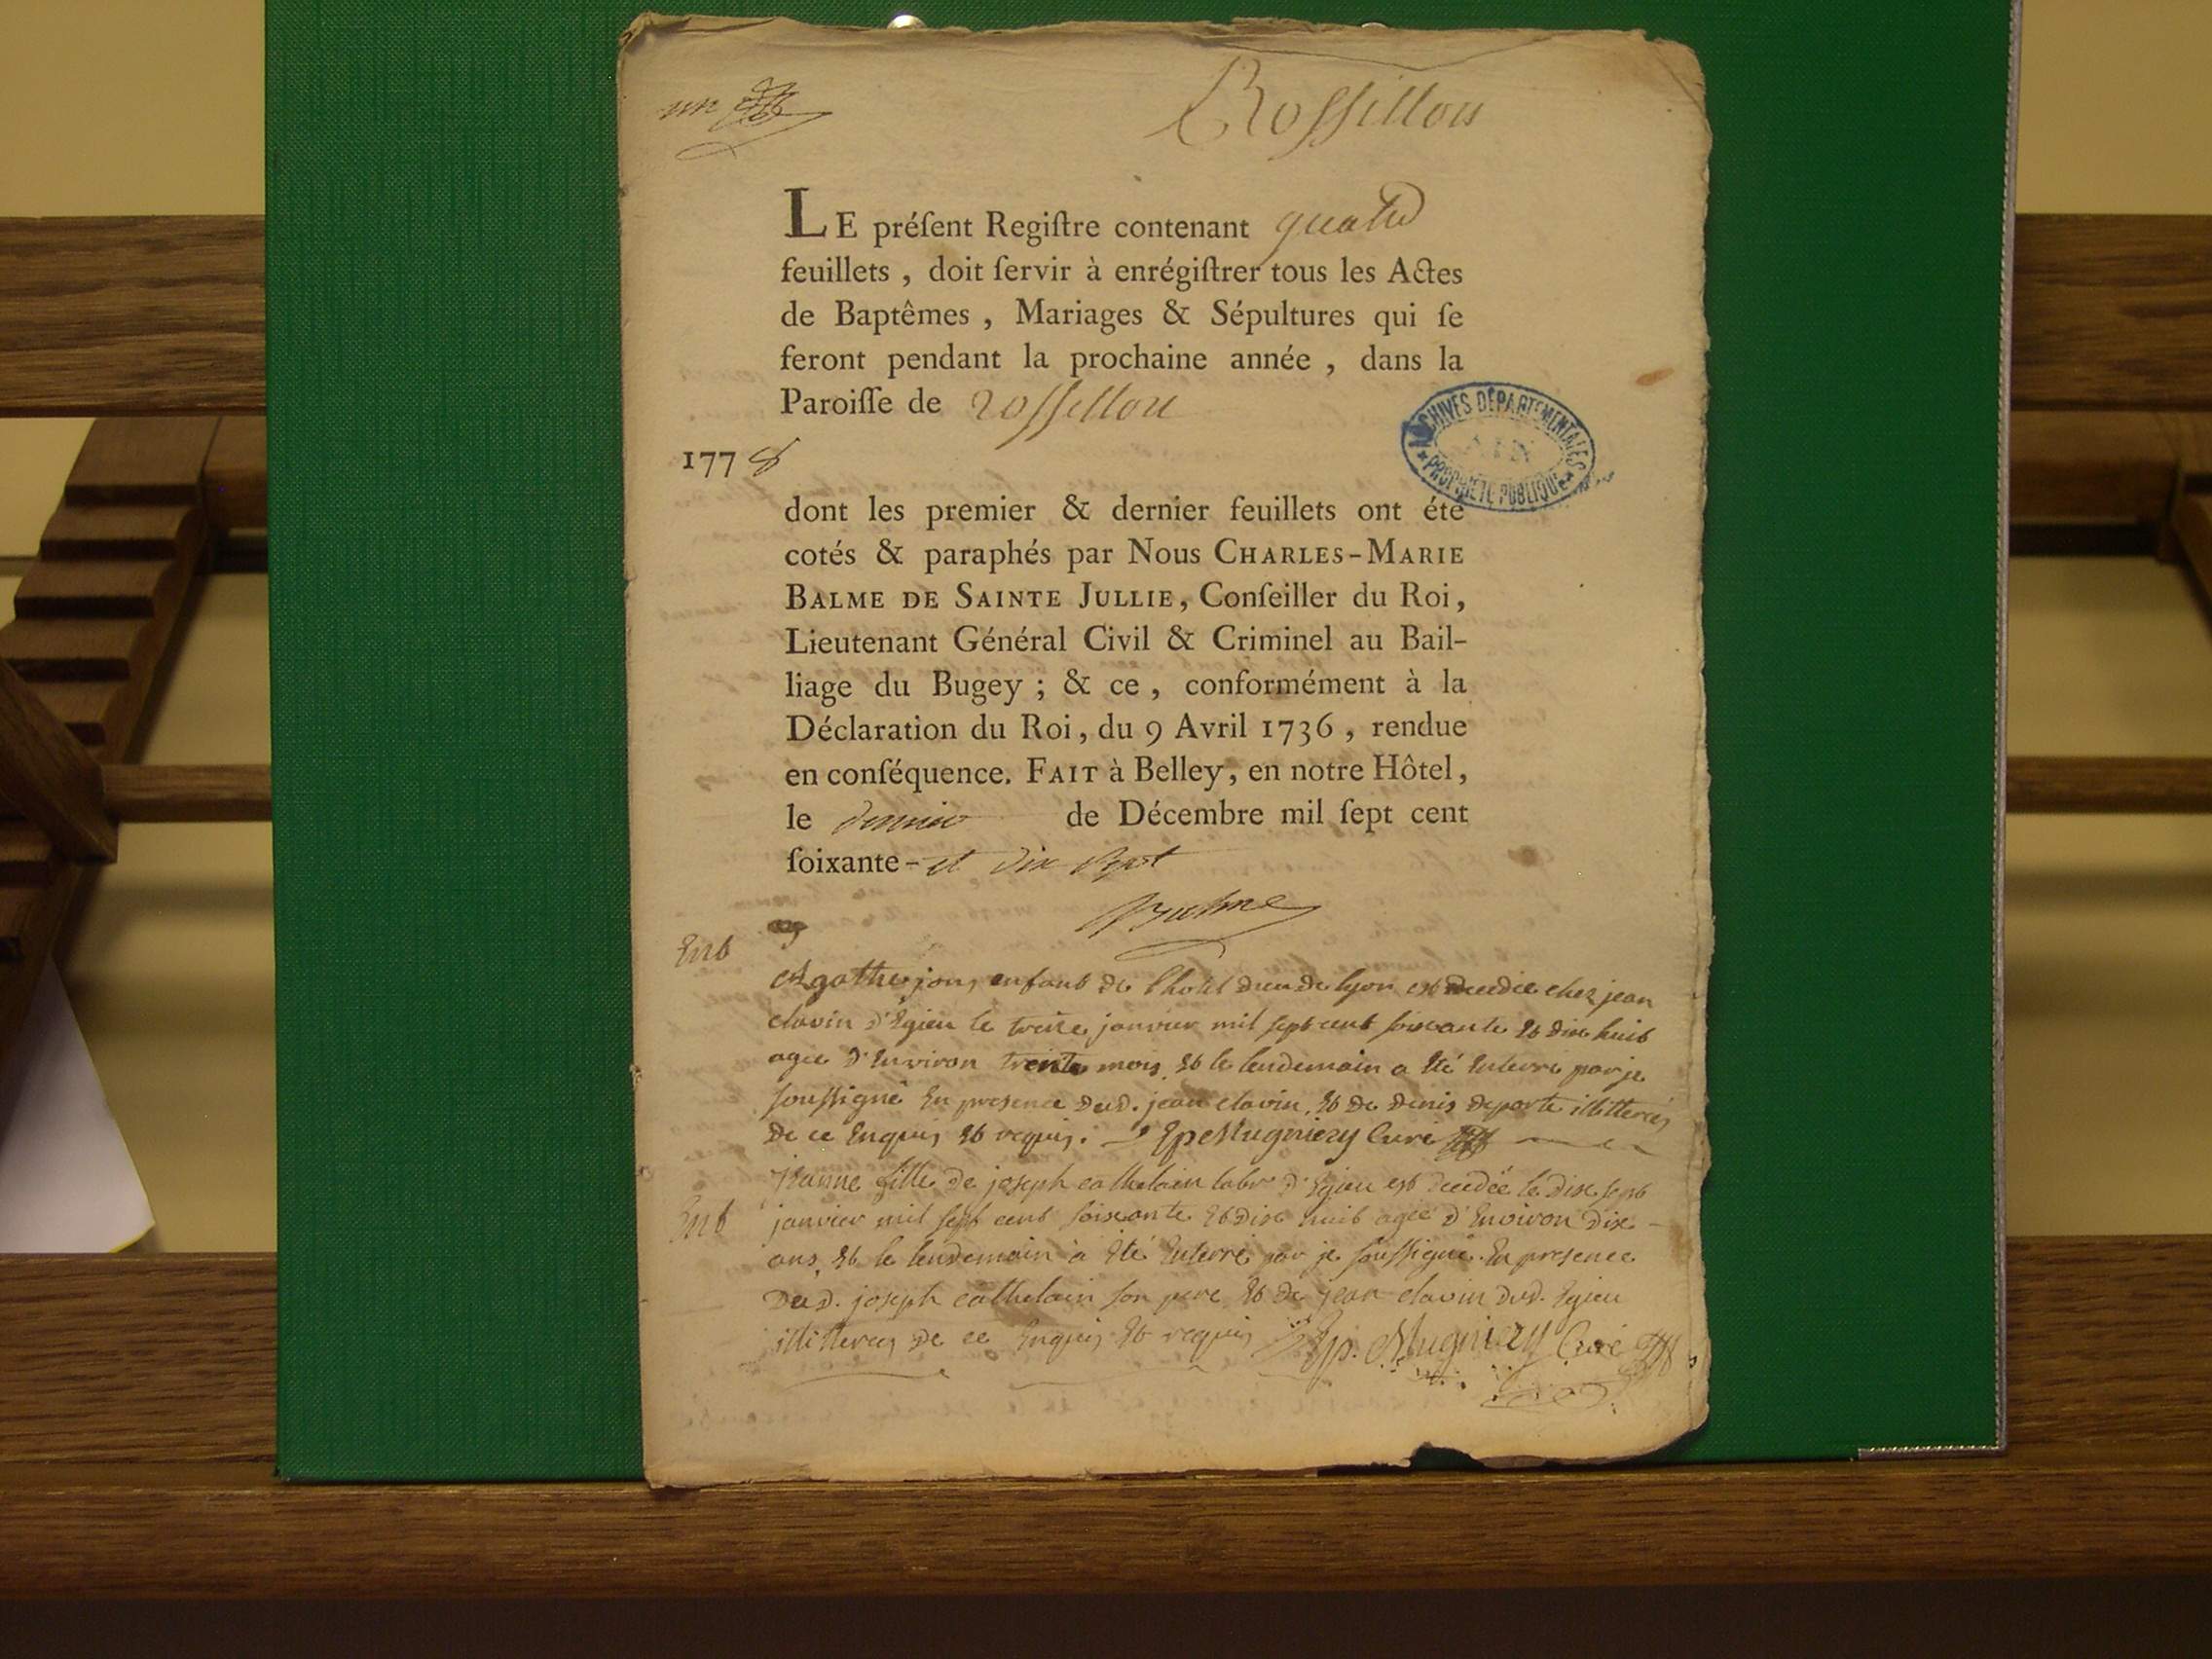 un
Rossillon
LE préſent Regiſtre contenant quatre
feuillets , doit ſervir à enrégiſtrer tous les Actes
de Baptêmes , Mariages & Sépultures qui ſe
feront pendant la prochaine année , dans la
Paroiſſe de rossillon
ARCHIVES DÉPARTEMENTALES
AIN
PROPRIÉTÉ PUBLIQUE
1778
dont les premier & dernier feuillets ont été
cotés & paraphés par Nous CHARLES-MARIE
BALME DE SAINTE JULLIE, Conſeiller du Roi,
Lieutenant Général Civil & Criminel au Bail-
liage du Bugey ; & ce , conformément à la
Déclaration du Roi, du 9 Avril 1736 , rendue
en conſéquence. FAIT à Belley, en notre Hôtel,
le dernier de Décembre mil ſept cent
ſoixante-et dix sept
Balme
Ent
Agathe enfant de l'hotel dieu de lyon est decedée chez jean
clavin d'Egieu le treize janvier mil sept cent soixante Et dix huit
agée d'Environ trente mois, Et le lendemain a Eté Enterré par je
soussigné En presence dud. jean clavin, Et de denis deporte illitterés
de ce Enquis Et requis. Mugniery Curé
Ent
jeanne fille de joseph cathelain labr d'Egieu est decedée le dix sept
janvier mil sept cent soixante Et dix huit agée d'Environ dix
ans, Et le lendemain a Eté Enterré par je soussigné. En presence
dud. joseph cathelain son pere Et de jean clavin dud. Egieu
illitterés de ce Enquis Et requis Mugniery Curé